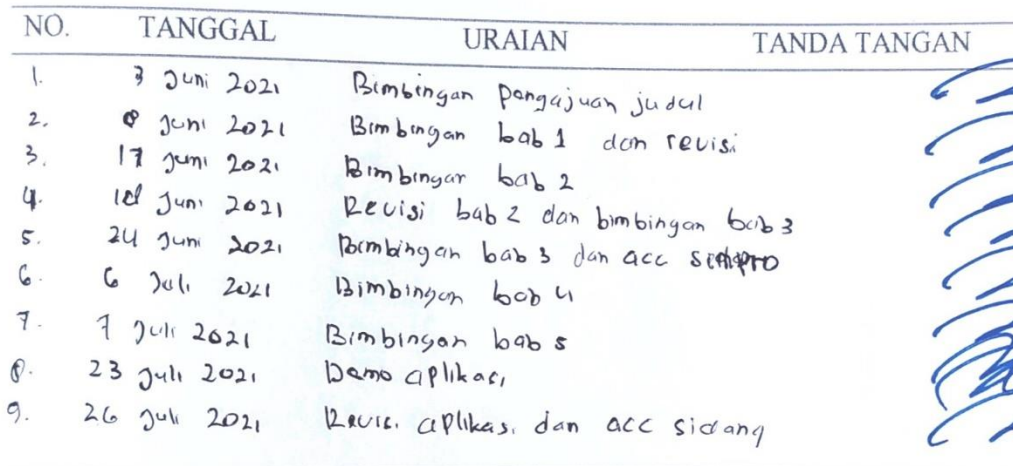 NO. TANGGAL URAIAN TANDA TANGAN
1. 3 Juni 2021 Bimbingan pengajuan judul
2. 8 Juni 2021 Bimbingan bab 1 dan revisi
3. 17 Juni 2021 Bimbingan bab 2
4. Juni 2021 Revisi bab 2 dan bimbingan bab 3
5. 24 Juni 2021 Bimbingan bab 3 dan acc sempro
6. 6 Juli 2021 Bimbingan bab 4
7. 7 Juli 2021 Bimbingan bab 5
8. 23 Juli 2021 Demo aplikasi
9. 26 Juli 2021 Revisi aplikasi dan acc sidang